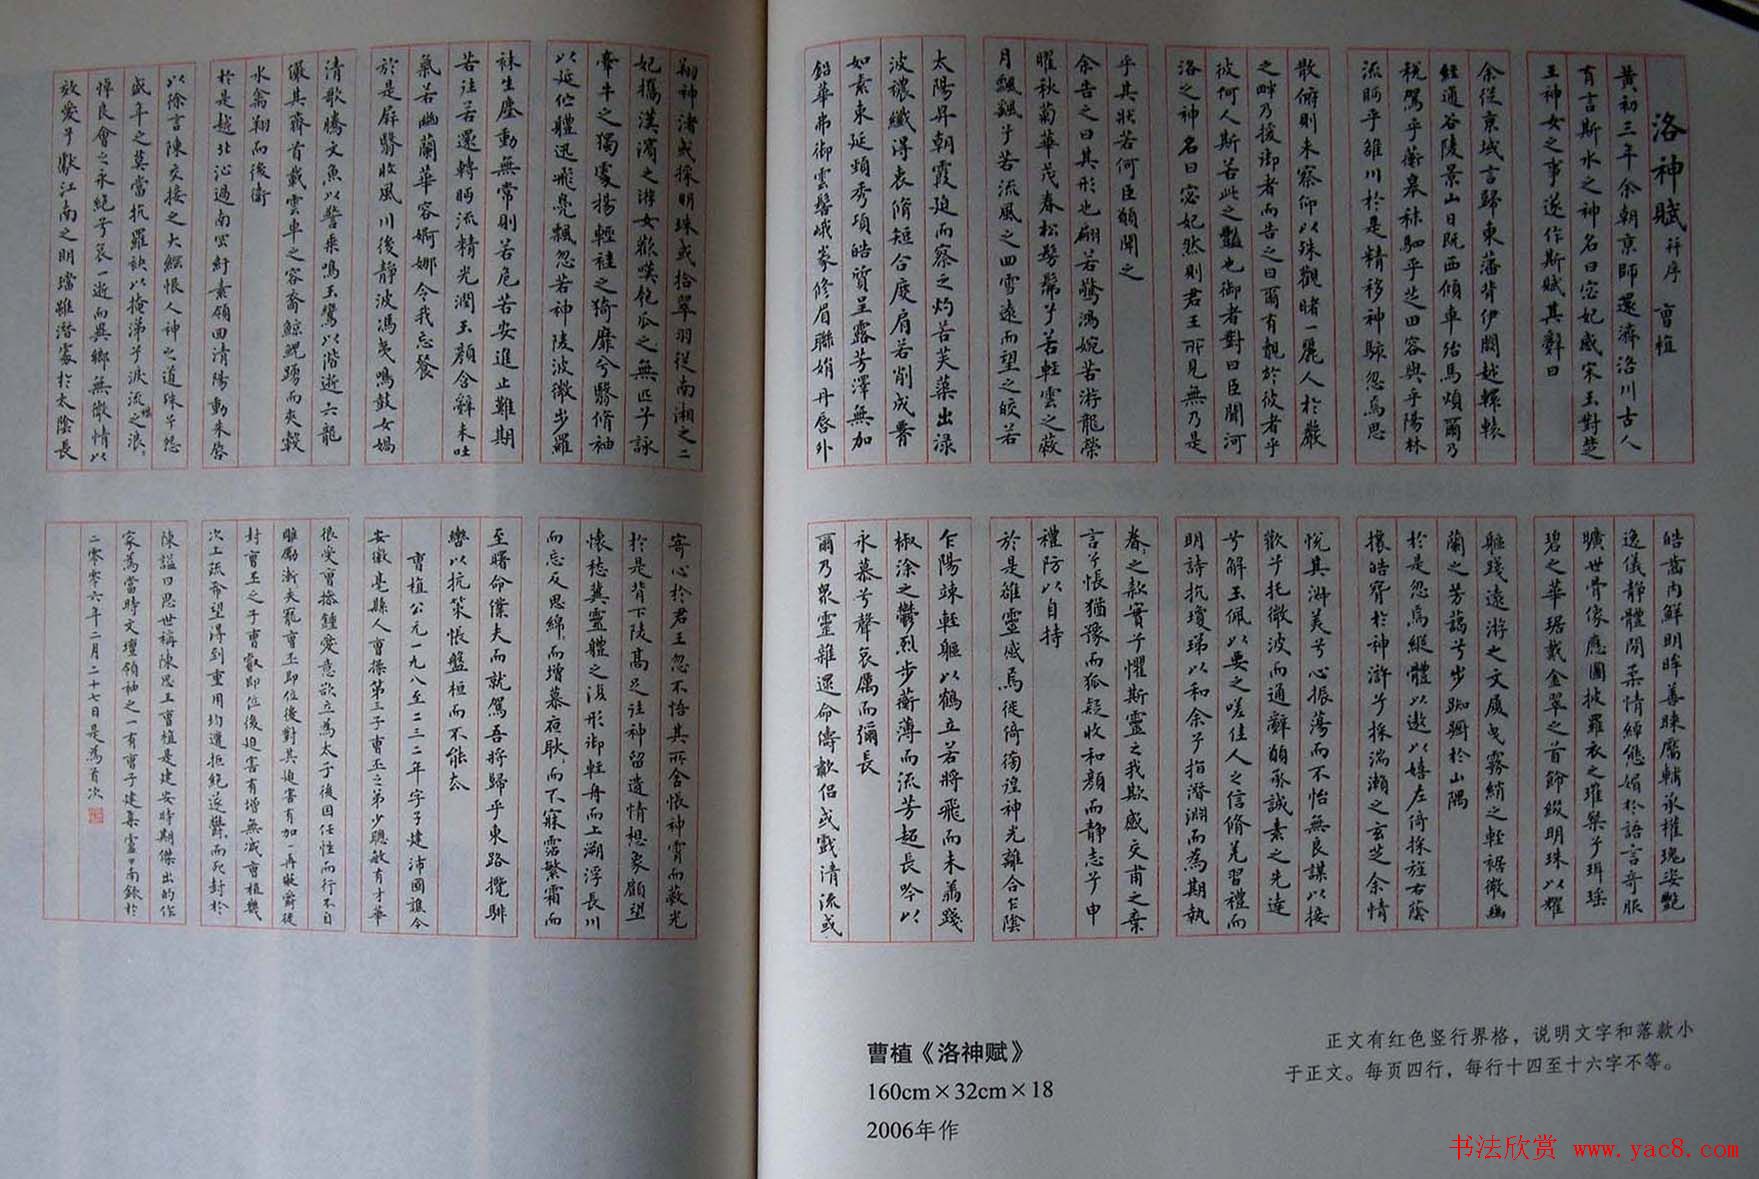 洛神賦 并序 曹植
黃初三年余朝京師還濟洛川古人
有言斯水之神名曰宓妃感宋玉對楚
王神女之事遂作斯賦其辭曰
余從京域言歸東藩背伊闕越轘轅
經通谷陵景山日既西傾車殆馬煩爾乃
稅駕乎蘅皋秣駟乎芝田容與乎陽林
流眄乎雒川於是精移神駭忽焉思
散俯則未察仰以殊觀睹一麗人於巖
之畔乃援御者而告之曰爾有覿於彼者乎
彼何人斯若此之豔也御者對曰臣聞河
洛之神名曰宓妃然則君王所見無乃是
乎其狀若何臣願聞之
余告之曰其形也翩若驚鴻婉若游龍榮
曜秋菊華茂春松髣髴兮若輕雲之蔽
月飄颻兮若流風之回雪遠而望之皎若
太陽昇朝霞迫而察之灼若芙蕖出淥
波襛纖得衷脩短合度肩若削成腰
如素束延頸秀項皓質呈露芳澤無加
鉛華弗御雲髻峨峩修眉聯娟丹唇外
皓齒內鮮明眸善睞靨輔承權瑰姿艷
逸儀靜體閑柔情綽態媚於語言奇服
曠世骨像應圖披羅衣之璀粲兮珥瑤
碧之華琚戴金翠之首飾綴明珠以耀
軀踐遠游之文履曳霧綃之輕裾微幽
蘭之芳藹兮步踟躕於山隅
於是忽焉縱體以遨以嬉左倚採旄右蔭
攘皓腕於神滸兮採湍瀨之玄芝余情
悅其淑美兮心振蕩而不怡無良媒以接
歡兮托微波而通辭願誠素之先達
兮解玉佩以要之嗟佳人之信脩羌習禮而
明詩抗瓊珶以和余兮指潛淵而為期執
眷之款實兮懼斯靈之我欺感交甫之棄
言兮悵猶豫而狐疑收和顏而靜志兮申
禮防以自持
於是雒靈感焉徙倚徬徨神光離合乍陰
乍陽竦輕軀以鶴立若將飛而未翔踐
椒涂之鬱烈步蘅薄而流芳超長吟以
永慕兮聲哀厲而彌長
爾乃眾靈雜遝命儔嘯侶或戲清流或
翔神渚或採明珠或拾翠羽從南湘之二
妃攜漢濱之游女歎匏瓜之無匹兮詠
牽牛之獨處揚輕袿之猗靡兮翳脩袖
以延佇體迅飛鳧飄忽若神陵波微步羅
襪生塵動無常則若危若安進止難期
若往若還轉眄流精光潤玉顏含辭未吐
氣若幽蘭華容婀娜令我忘餐
於是屏翳收風川後靜波馮夷鳴鼓女媧
清歌騰文魚以警乘鳴玉鸞以偕逝六龍
儼其齊首載雲車之容裔鯨鯢踴而夾轂
水禽翔而後衛
於是越北沚過南岡紆素領回清陽動朱唇
以徐言陳交接之大綱恨人神之道殊兮怨
盛年之莫當抗羅袂以掩涕兮淚流之浪浪
悼良會之永絕兮哀一逝而異鄉無微情以
效愛兮獻江南之明璫雖潛處於太陰長
寄心於君王忽不悟其所舍悵神宵而蔽光
於是背下陵高足往神留遺情想象顧望
懷愁冀靈體之復形御輕舟而上溯浮長川
而忘反思綿綿而增慕夜耿耿而不寐霑繁霜而
至曙命僕夫而就駕吾將歸乎東路攬騑
轡以抗策悵盤桓而不能去
曹植公元一九八至二三二年字子建沛國譙今
安徽亳縣人曹操第三子曹丕之弟少聰敏有才華
很受曹操鍾愛意欲立為太子後因任性而行不自
雕勵漸失寵曹丕即位後對其迫害有加一再貶爵徙
封曹丕之子曹叡即位後迫害有增無減曹植幾
次上疏希望得到重用均遭拒絕遂鬱鬱而死封於
陳謚曰思世稱陳思王曹植是建安時期傑出的作
家為當時文壇領袖之一有曹子建集
二零零六年二月二十七日是為首次
曹植《洛神赋》
160cm×32cm×18
2006年作
正文有红色竖行界格，说明文字和落款小
于正文。每页四行，每行十四至十六字不等。
书法欣赏 www.yac8.com